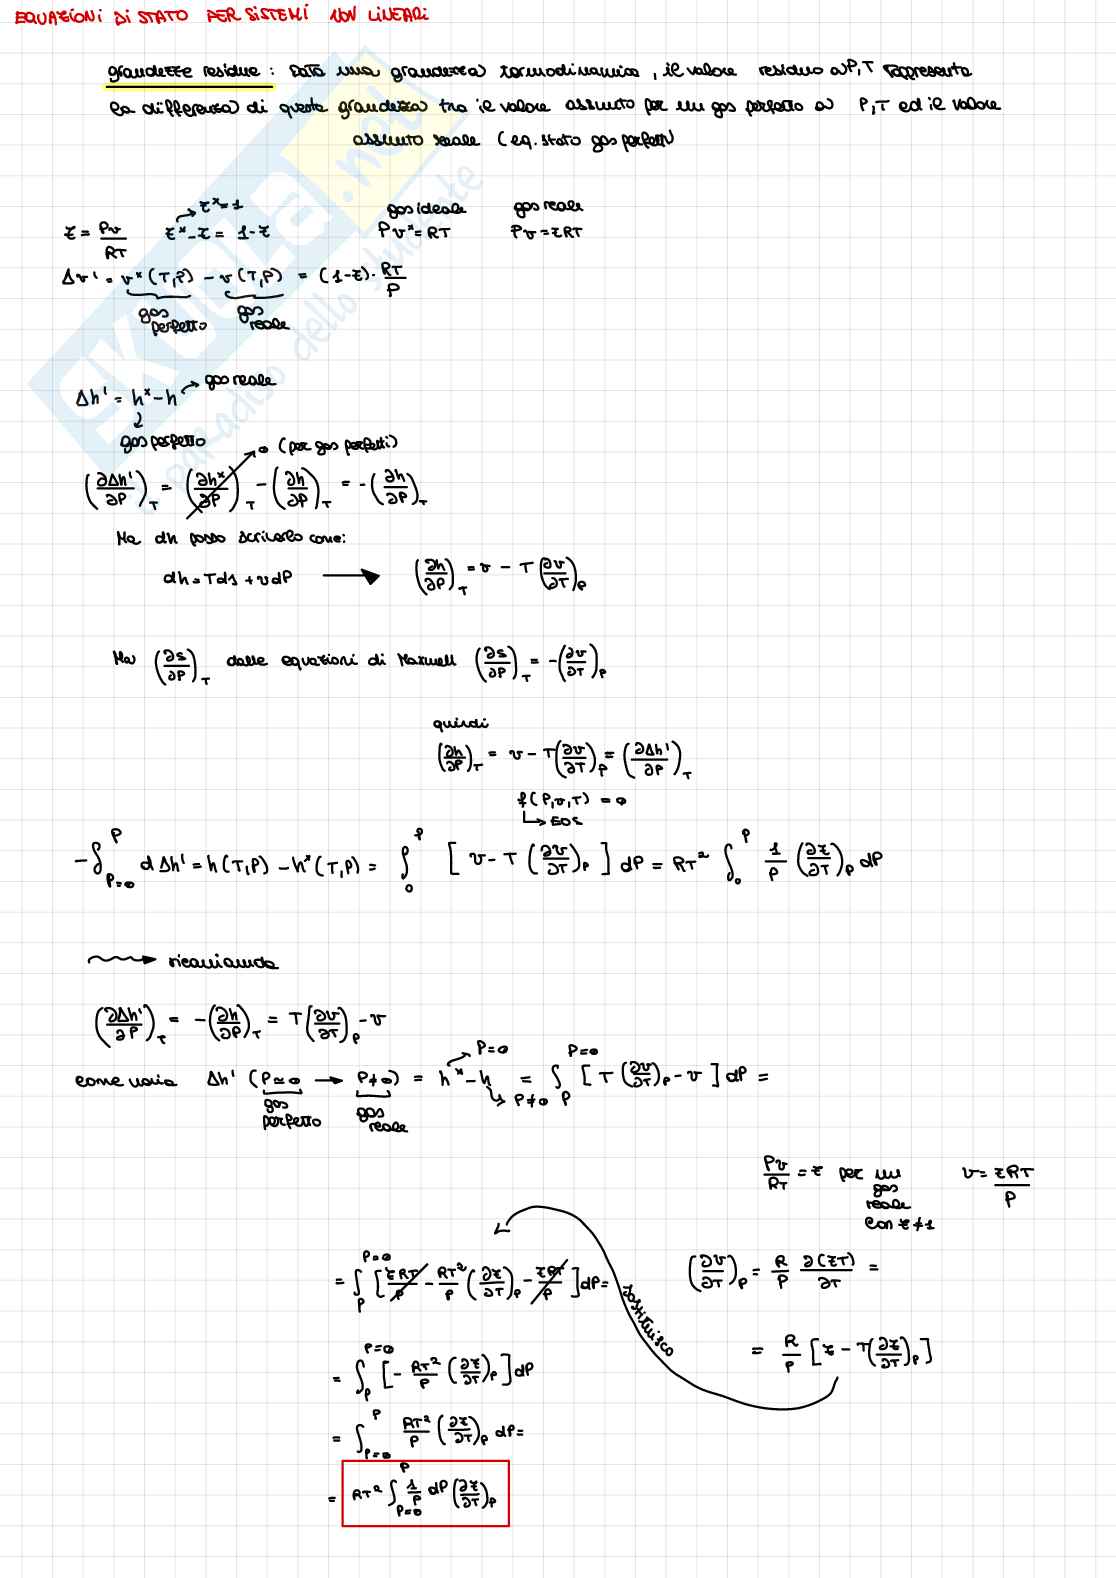 EQUAZIONI DI STATO PER SISTEMI NON LINEARI
grandezze residue : Data una grandezza termodinamica, il valore residuo a P,T rappresenta
la differenza di questa grandezza tra il valore assunto per un gas perfetto a P,T ed il valore
assunto reale (eq. stato gas perfetti)
z*=1
gas ideale gas reale
z = Pv/RT z*-z = 1-z Pv*=RT Pv=zRT
Δv' = v*(T,P) - v(T,P) = (1-z)·RT/P
gas perfetto gas reale
Δh' = h*-h → gas reale
gas perfetto
0 (per gas perfetti)
(∂Δh'/∂P)_T = (∂h*/∂P)_T - (∂h/∂P)_T = -(∂h/∂P)_T
Ma dh posso scriverlo come:
dh=Tds+vdP → (∂h/∂P)_T = v - T(∂v/∂T)_P
Ma (∂s/∂P)_T dalle equazioni di Maxwell (∂s/∂P)_T = -(∂v/∂T)_P
quindi
(∂h/∂P)_T = v - T(∂v/∂T)_P = (∂Δh'/∂P)_T
f(P,v,T) = 0
↳ EOS
-∫_{P=0}^{P} dΔh' = h(T,P) - h*(T,P) = ∫_0^P [v - T(∂v/∂T)_P] dP = RT² ∫_0^P 1/P (∂z/∂T)_P dP
→ ricavando
(∂Δh'/∂P)_T = -(∂h/∂P)_T = T(∂v/∂T)_P - v
P=0
come varia Δh' (P≃0 → P≠0) = h*-h = ∫_P^{P=0} [T(∂v/∂T)_P - v] dP =
↳ P≠0
gas perfetto gas reale
Pv/RT = z per un gas reale con z≠1 v = zRT/P
= ∫_P^{P=0} [zRT/P - RT²/P (∂z/∂T)_P - zRT/P] dP= (∂v/∂T)_P = R/P ∂(zT)/∂T =
sostituisco
= R/P [z - T(∂z/∂T)_P]
= ∫_P^{P=0} [- RT²/P (∂z/∂T)_P] dP
= ∫_{P=0}^{P} RT²/P (∂z/∂T)_P dP=
= RT² ∫_{P=0}^{P} 1/P dP (∂z/∂T)_P
SKUOLA.net
paradiso dello studente